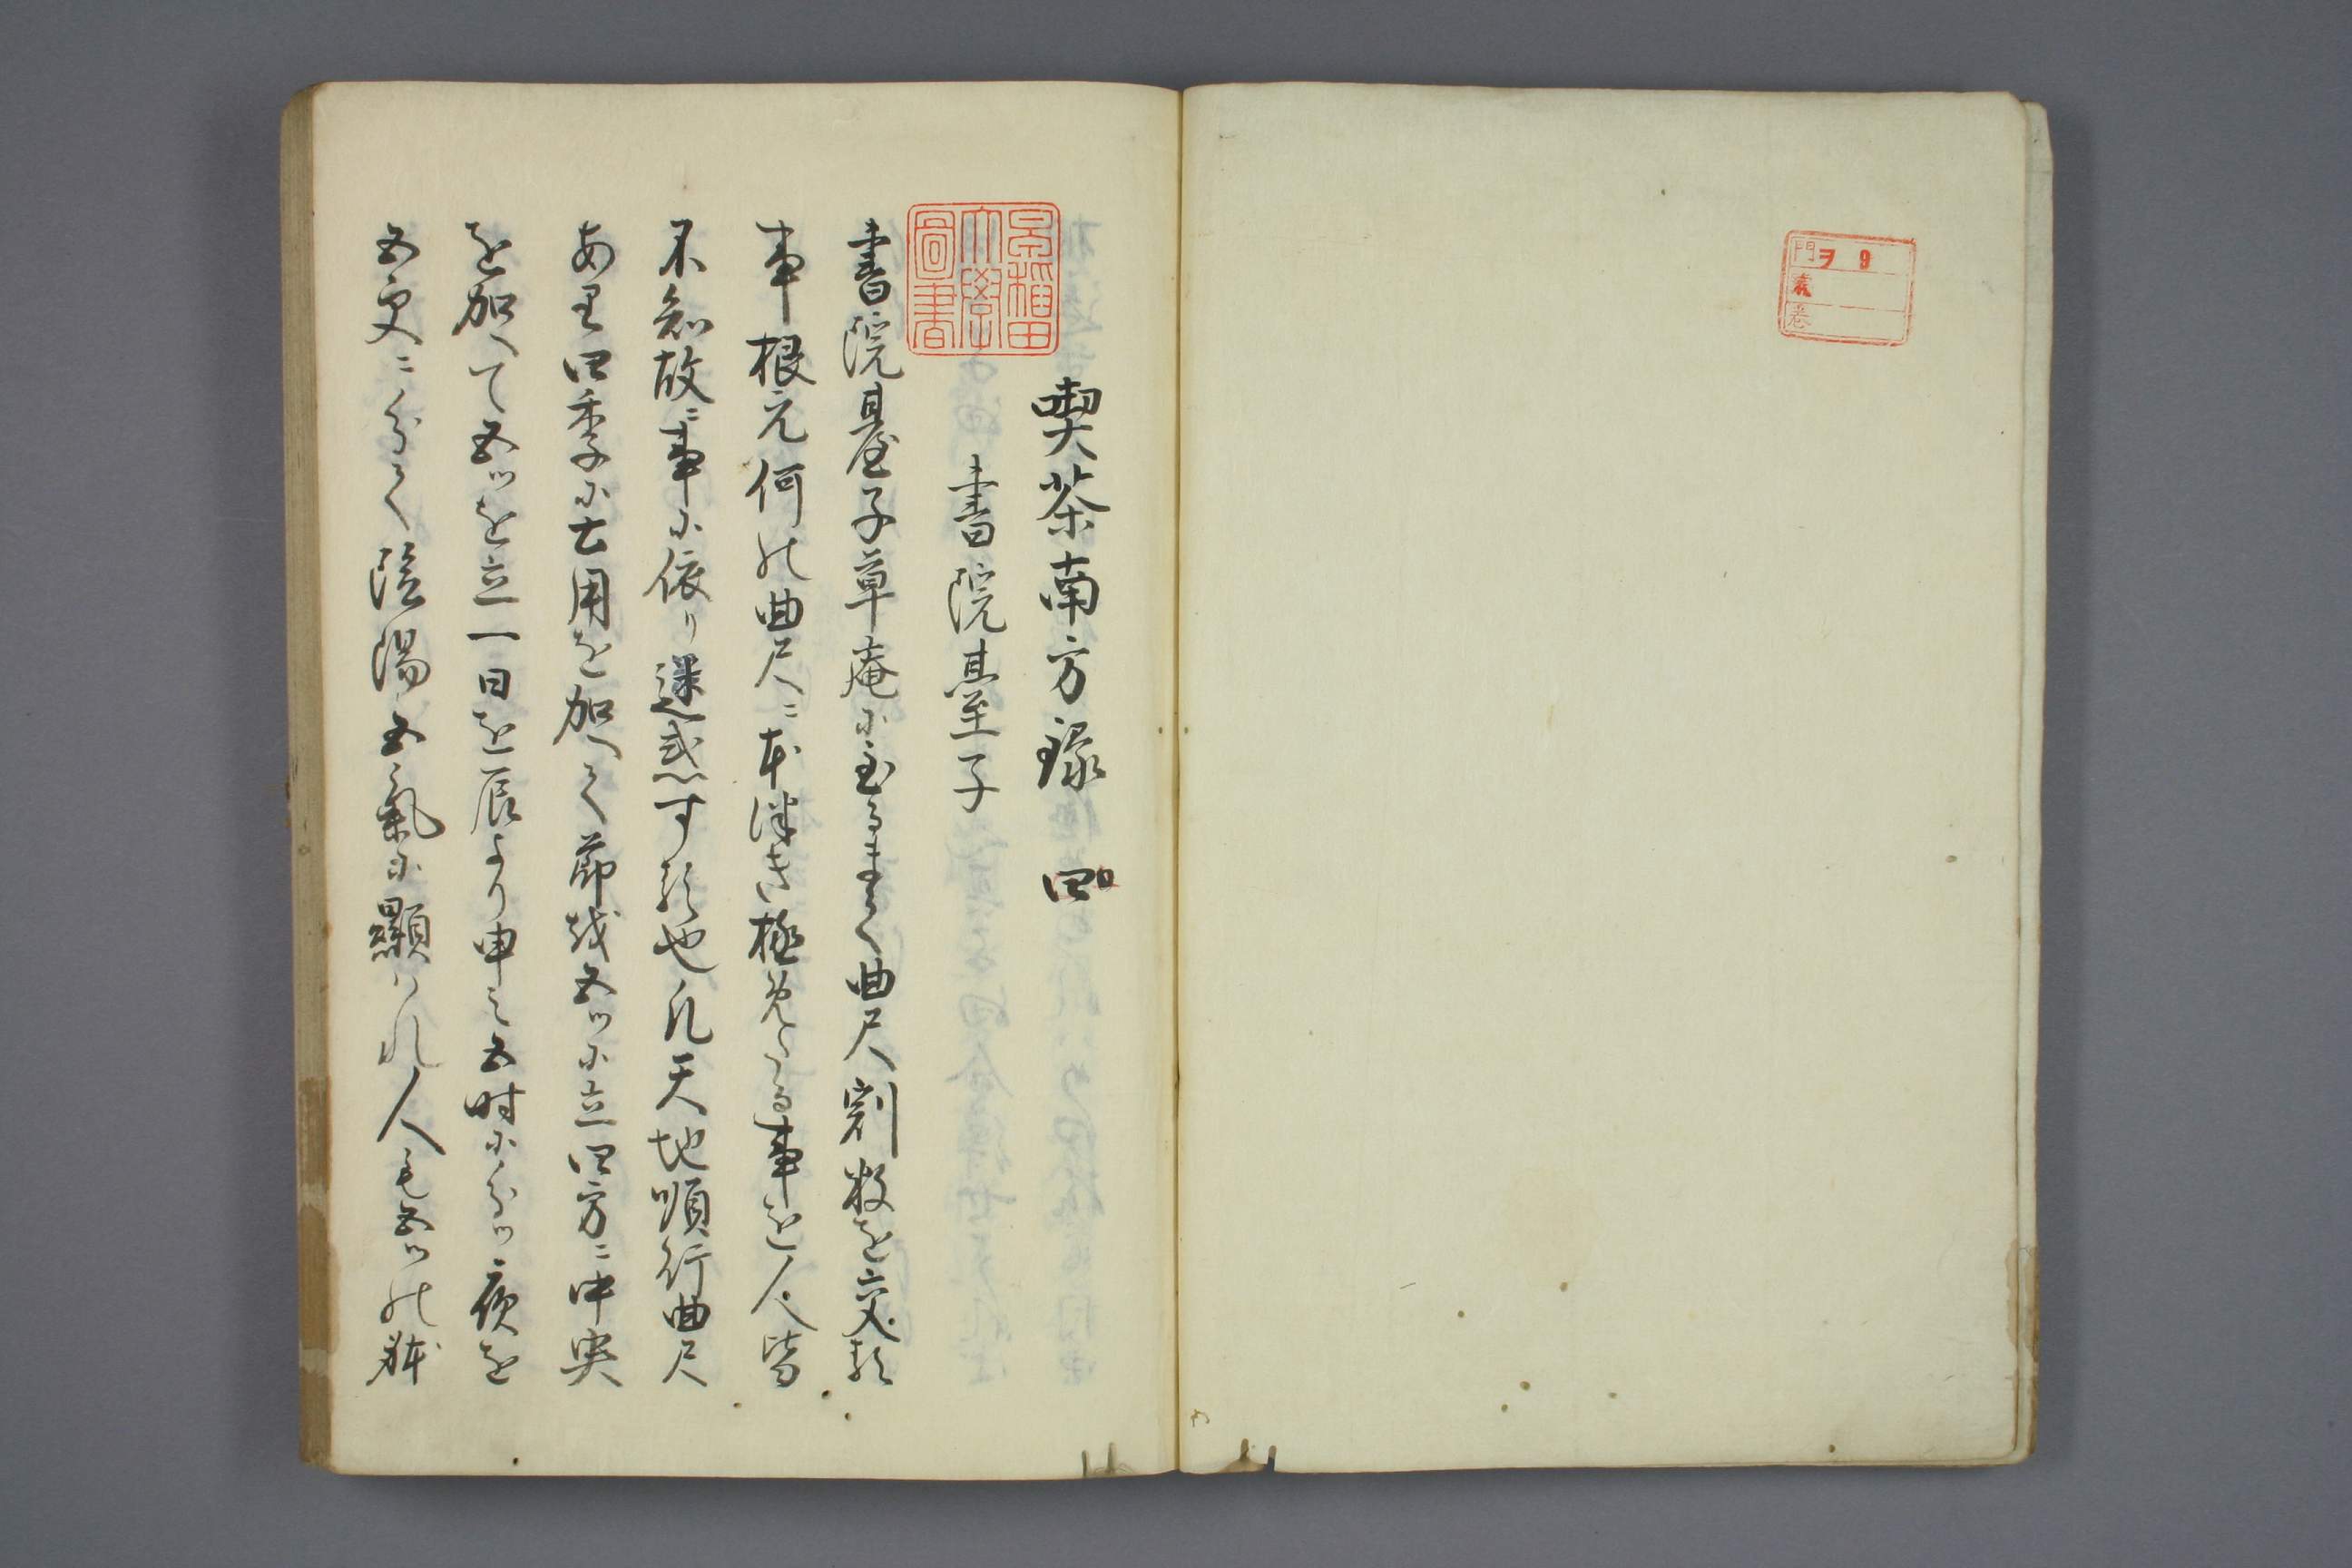 門ヲ 9
號
卷
早稲田大學圖書
喫茶南方録 四
書院臺子
書院臺子草庵に至るまて曲尺割数を交る
事根元何の曲尺ニ本法き極めたる事を人皆
不知故ニ事に依り迷惑する也凡天地順行曲尺
あり四季に土用を加へて節被五ツに立四方ニ中央
を加へて五ツを立一日を辰より申之五時に分ツ夜を
五更ニ分て陰陽五氣に顯ハれ人も五ツの躰